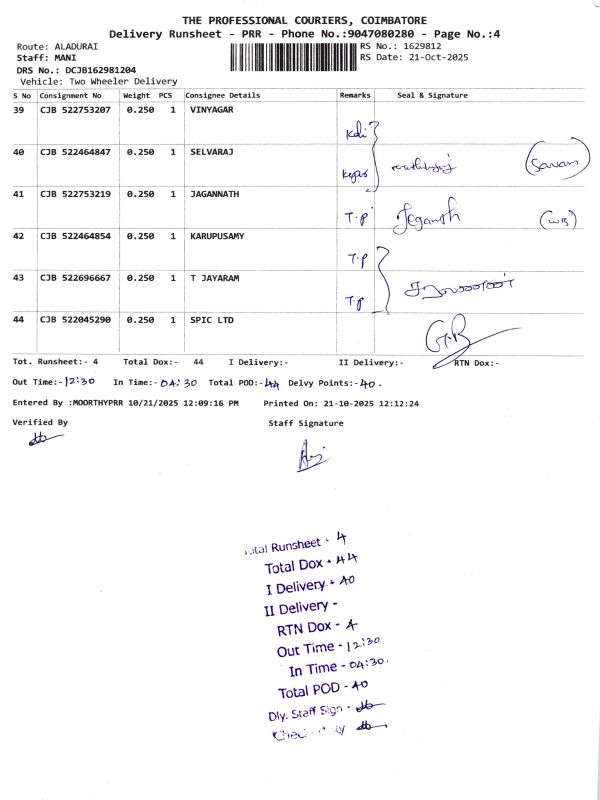 THE PROFESSIONAL COURIERS, COIMBATORE
Delivery Runsheet - PRR - Phone No.:9047080280 - Page No.:4
Route: ALADURAI RS No.: 1629812
Staff: MANI RS Date: 21-Oct-2025
DRS No.: DCJB162981204
Vehicle: Two Wheeler Delivery
S No Consignment No Weight PCS Consignee Details Remarks Seal & Signature
39 CJB 522753207 0.250 1 VINYAGAR
40 CJB 522464847 0.250 1 SELVARAJ
41 CJB 522753219 0.250 1 JAGANNATH
T.P Jeganath (WB)
42 CJB 522464854 0.250 1 KARUPUSAMY
T.P
43 CJB 522696667 0.250 1 T JAYARAM
T.P சரவணன்
44 CJB 522045290 0.250 1 SPIC LTD
Tot. Runsheet:- 4 Total Dox:- 44 I Delivery:- II Delivery:- RTN Dox:-
Out Time:- 12:30 In Time:- 04:30 Total POD:- 44 Delvy Points:- 40.
Entered By :MOORTHYPRR 10/21/2025 12:09:16 PM Printed On: 21-10-2025 12:12:24
Verified By Staff Signature
Total Runsheet - 4
Total Dox - 44
I Delivery - 40
II Delivery -
RTN Dox - 4
Out Time - 12:30
In Time - 04:30.
Total POD - 40
Dly. Staff Sign -